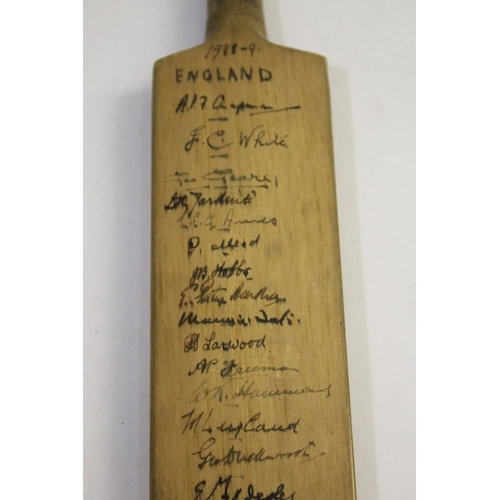 1928-9.
ENGLAND
A.P.F. Chapman
J. C. White
Geo Geary,
D.R. Jardine
L. E. G. Ames
P. Mead
J B Hobbs
E. Patsy Hendren
Maurice Tate.
H Larwood
AP Freeman
W. R. Hammond
M Leyland
Geo Duckworth
E Tyldesley